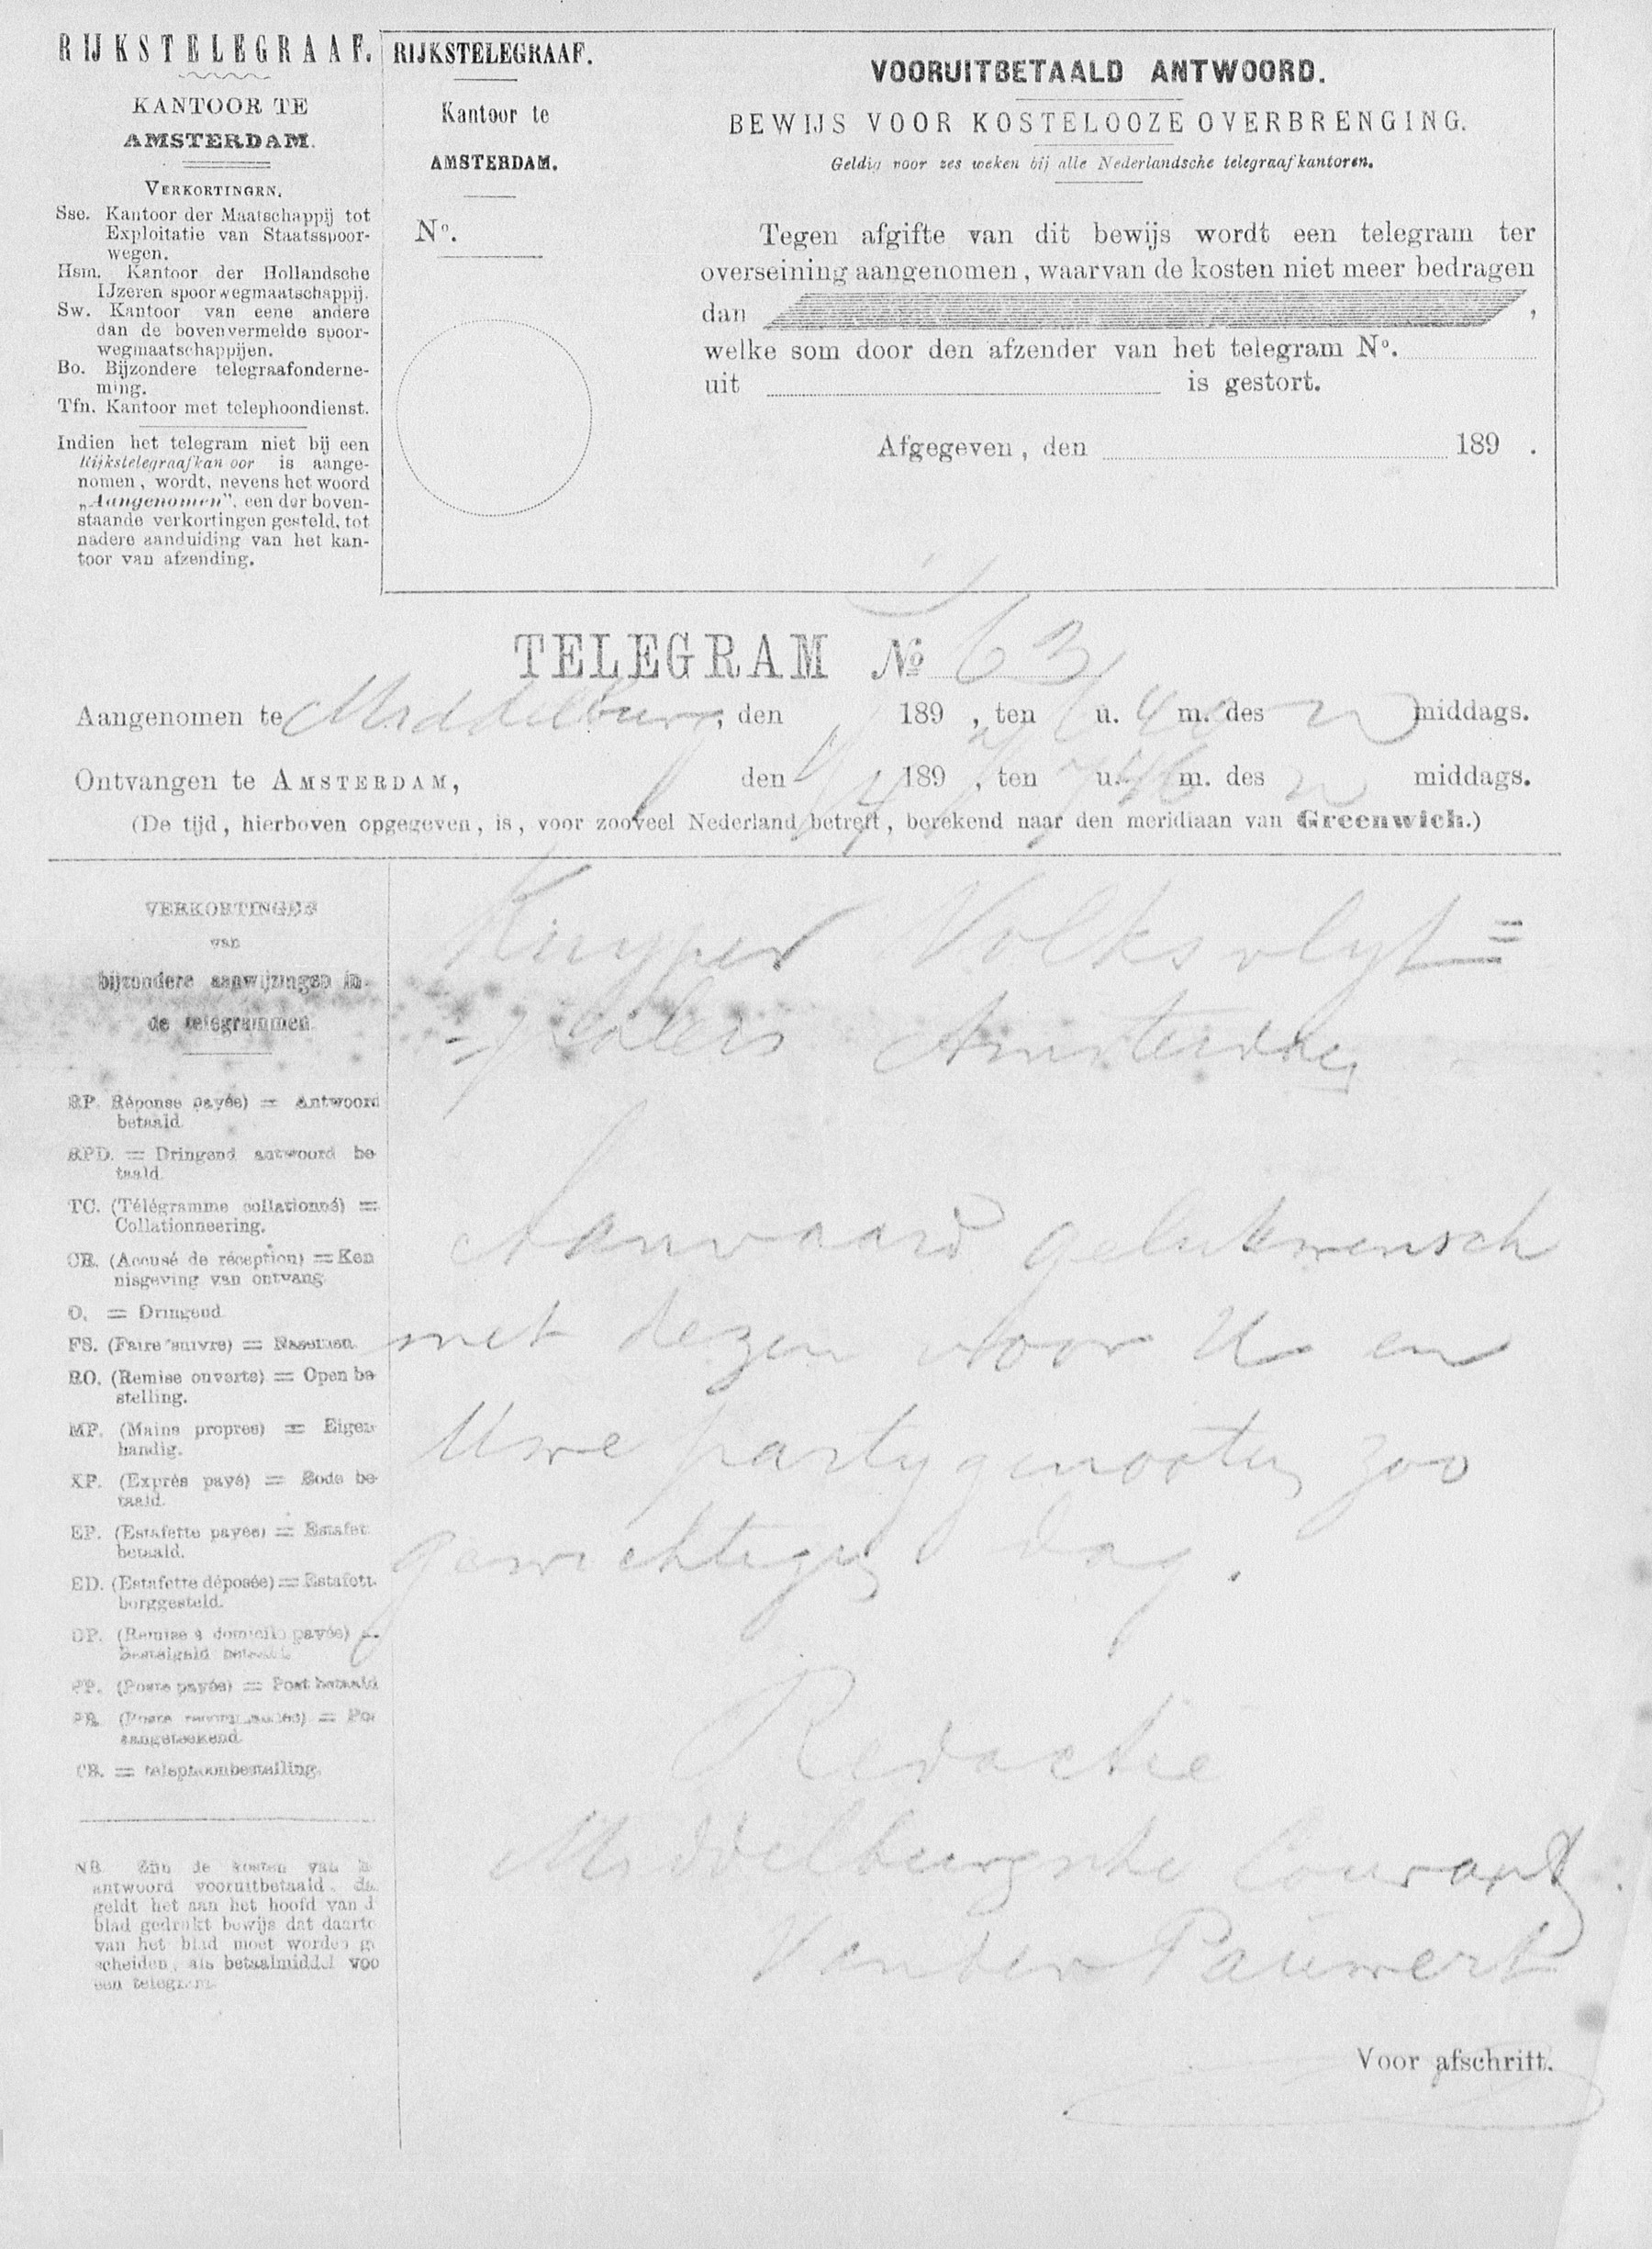 RIJKSTELEGRAAF.
KANTOOR TE
AMSTERDAM.
VERKORTINGEN.
Sse. Kantoor der Maatschappij tot
Exploitatie van Staatsspoor-
wegen.
Hsm. Kantoor der Hollandsche
IJzeren spoorwegmaatschappij.
Sw. Kantoor van eene andere
dan de bovenvermelde spoor-
wegmaatschappijen.
Bo. Bijzondere telegraafonderne-
ming.
Tfn. Kantoor met telephoondienst.
Indien het telegram niet bij een
Rijkstelegraafkan oor is aange-
nomen, wordt, nevens het woord
„Aangenomen", een der boven-
staande verkortingen gesteld, tot
nadere aanduiding van het kan-
toor van afzending.
RIJKSTELEGRAAF.
Kantoor te
AMSTERDAM.
No.
VOORUITBETAALD ANTWOORD.
BEWIJS VOOR KOSTELOOZE OVERBRENGING.
Geldig voor zes weken bij alle Nederlandsche telegraafkantoren.
Tegen afgifte van dit bewijs wordt een telegram ter
overseining aangenomen, waarvan de kosten niet meer bedragen
dan ,
welke som door den afzender van het telegram No.
uit is gestort.
Afgegeven, den 189 .
TELEGRAM No 63
Aangenomen te Middelburg, den 189 , ten 6 u. 40 m. des n middags.
Ontvangen te AMSTERDAM, den 1/4 189 7, ten 7 u. 46 m. des n middags.
(De tijd, hierboven opgegeven, is, voor zooveel Nederland betreft, berekend naar den meridiaan van Greenwich.)
VERKORTINGEN
van
bijzondere aanwijzingen in
de telegrammen
RP. Réponse payée) = Antwoord
betaald.
RPD. = Dringend antwoord be
taald.
TC. (Télégramme collationné) =
Collationneering.
CR. (Accusé de réception) = Ken
nisgeving van ontvang
D. = Dringend
FS. (Faire suivre) = Nasenden.
RO. (Remise ouverte) = Open be
stelling.
MP. (Mains propres) = Eigen
handig.
XP. (Exprès payé) = Bode be-
taald.
EP. (Estafette payée) = Estafet
betaald.
ED. (Estafette déposée) = Estafett.
borggesteld.
DP. (Remise à domicile payée) =
Bestelgeld betaald.
PP. (Poste payée) = Post betaald
PR. (Poste recommandée) = Po
aangeteekend.
= telephoonbestelling.
NB. Zijn de kosten van
antwoord vooruitbetaald, da
geldt het aan het hoofd van d
blad gedrukt bewijs dat daarto
van het blad moet worden g
scheiden, als betaalmiddel voo
een telegram.
Kuyper Volksvlyt=
=paleis Amsterdam
Aanvaard gelukwensch
met dezen voor U en
Uwe partygenooten zoo
gewichtigen dag.
Redactie
Middelburgsche Courant
Vander Pauwert
Voor afschrift.